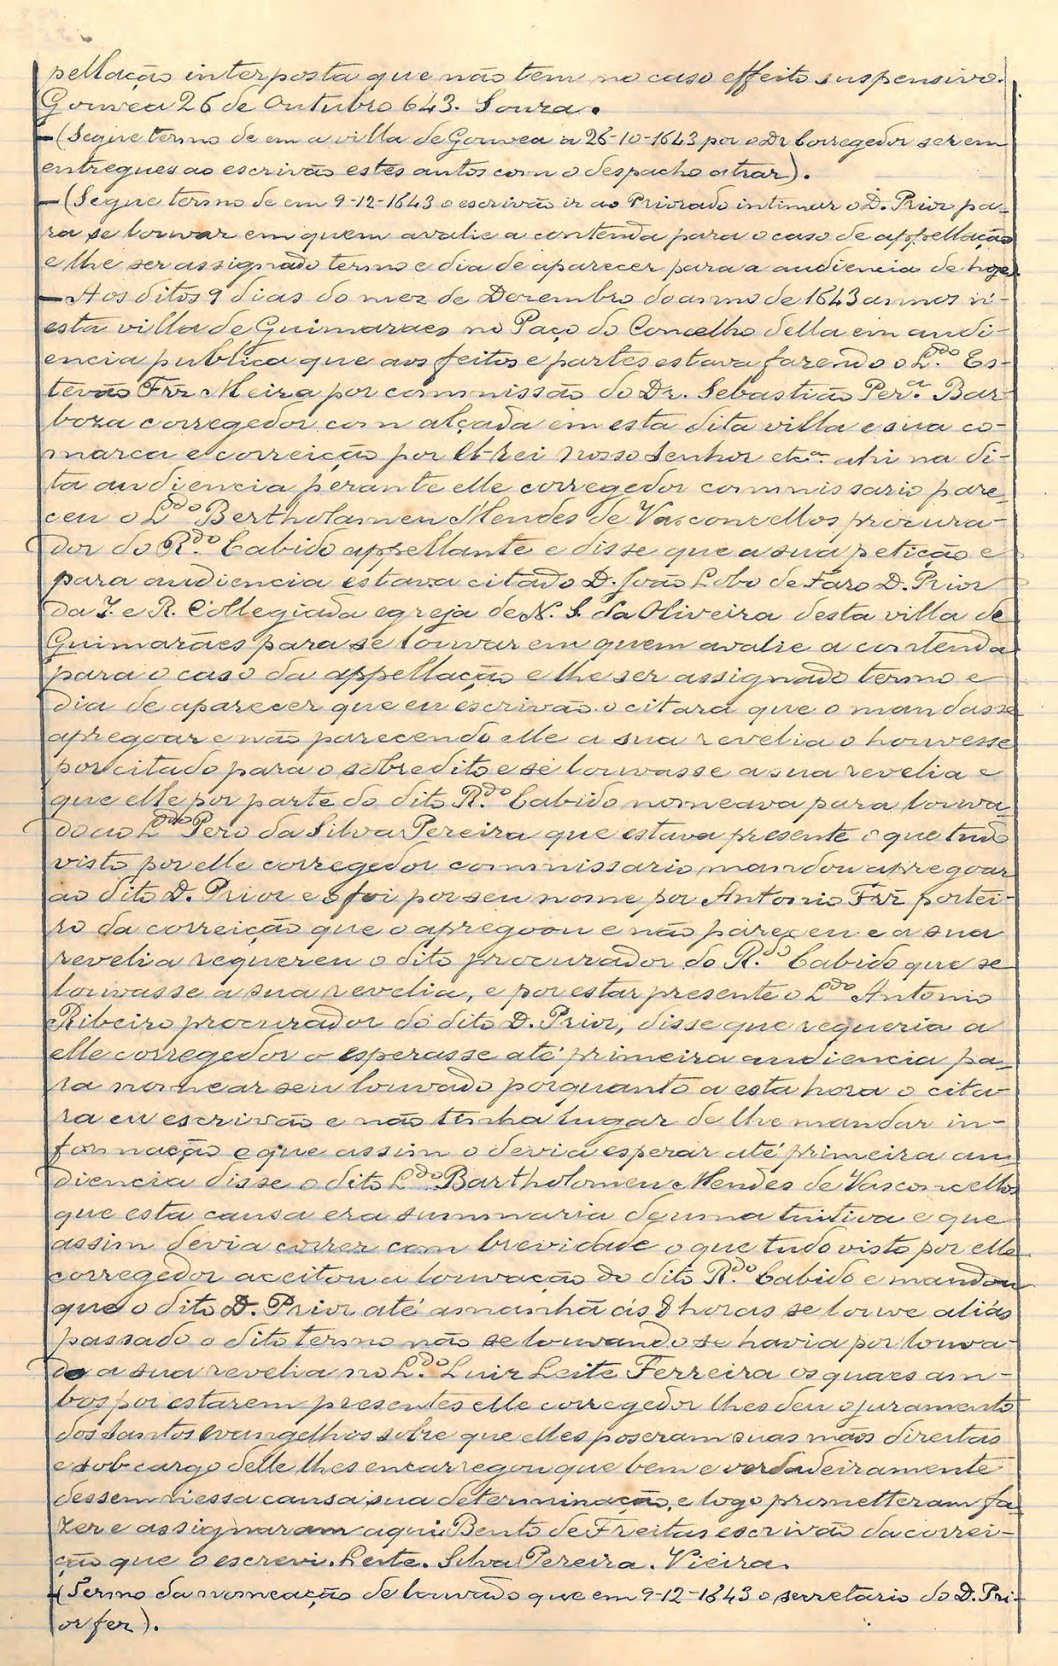 pellação interposta que não tem no caso effeito suspensivo.
Gouvea 26 de Outubro 643. Souza.
– (Segue termo de em a villa de Gouvea a 26-10-1643 por o Dr Corregedor serem
entregues ao escrivão estes autos com o despacho atraz).
– (Segue termo de em 9-12-1643 o escrivão ir ao Priorado intimar o D. Prior pa-
ra se louvar em quem avalie a contenda para o caso de appellação
e lhe ser assignado termo e dia de aparecer para a audiencia de hoje).
– Aos ditos 9 dias do mez de Dezembro do anno de 1643 annos n'-
esta villa de Guimaraes no Paço do Concelho della em audi-
encia publica que aos feitos e partes estava fazendo o L.do Es-
tevão Frz Meira por commissão do Dr. Sebastião Per.a Bar-
boza corregedor com alçada em esta dita villa e sua co-
marca e correição por El-rei nosso senhor etc.a ahi na di-
ta audiencia perante elle corregedor commissario pare-
ceu o L.do Bertholameu Mendes de Vasconcellos procura-
dor do R.do Cabido appellante e disse que a sua petição e
para audiencia estava citado D. João Lobo de Faro D. Prior
da I. e R. Collegiada egreja de N. S. da Oliveira desta villa de
Guimarães para se louvar em quem avalie a contenda
para o caso da appellação e lhe ser assignado termo e
dia de aparecer que eu escrivão o citara que o mandasse
apregoar e não parecendo elle a sua revelia o houvesse
por citado para o sobredito e se louvasse a sua revelia e
que elle por parte do dito R.do Cabido nomeava para louva-
do ao L.do Pero da Silva Pereira que estava presente o que tudo
visto por elle corregedor commissario mandou apregoar
ao dito D. Prior e o foi por seu nome por Antonio Frz portei-
ro da correição que o apregoou e não pareceu e a sua
revelia requereu o dito procurador do R.do Cabido que se
louvasse a sua revelia, e por estar presente o L.do Antonio
Ribeiro procurador do dito D. Prior, disse que requeria a
elle corregedor o esperasse até primeira audiencia pa-
ra nomear seu louvado porquanto a esta hora o cita-
ra eu escrivão e não tinha lugar de lhe mandar in-
formação e que assim o devia esperar até primeira au-
diencia disse o dito L.do Bartholomeu Mendes de Vasconcellos
que esta causa era summaria de uma tuitiva e que
assim devia correr com brevidade o que tudo visto por elle
corregedor aceitou a louvação do dito R.do Cabido e mandou
que o dito D. Prior até amanhã ás 8 horas se louve aliás
passado o dito termo não se louvando se havia por louva-
do a sua revelia no L.do Luiz Leite Ferreira os quaes am-
bos por estarem presentes elle corregedor lhes deu o juramento
dos Santos Evangelhos sobre que elles poseram suas mãos direitas
e sob cargo delle lhes encarregou que bem e verdadeiramente
dessem nessa causa sua determinação, e logo prometteram fa-
zer e assignaram aqui Bento de Freitas escrivão da correi-
ção que o escrevi. Leite. Silva Pereira. Vieira.
– (Termo da nomeação de louvado que em 9-12-1643 o secretario do D. Pri-
or fez).